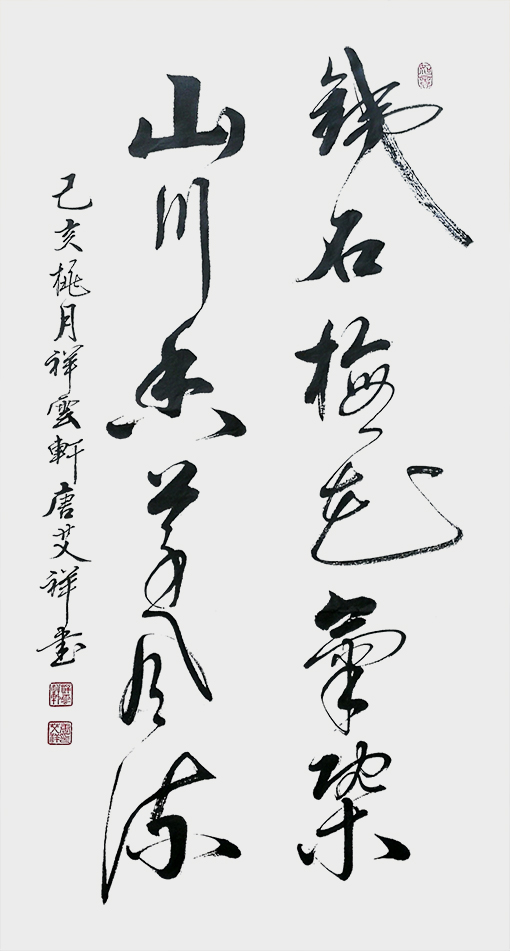 鐵石梅花氣槩
山川香草風流
己亥桃月祥雲軒唐艾祥書